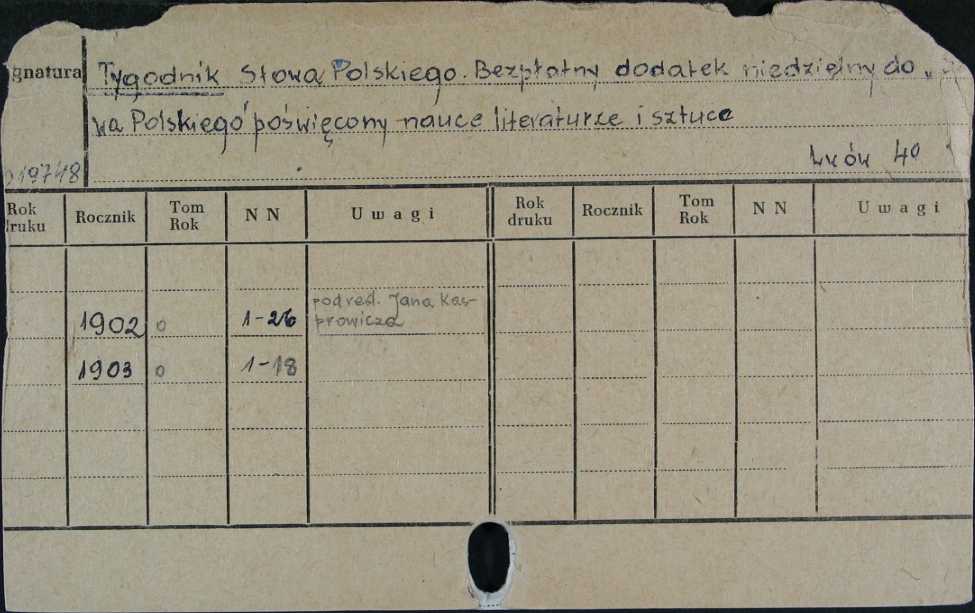 gnatura Tygodnik Słowa Polskiego. Bezpłatny dodatek niedzielny do „
wa Polskiego poświęcony nauce literaturze i sztuce
19748 Lwów 4º
Rok druku Rocznik Tom Rok N N Uwagi Rok druku Rocznik Tom Rok N N Uwagi
pod red. Jana Kas-
1902 o 1-26 prowicza
1903 o 1-18